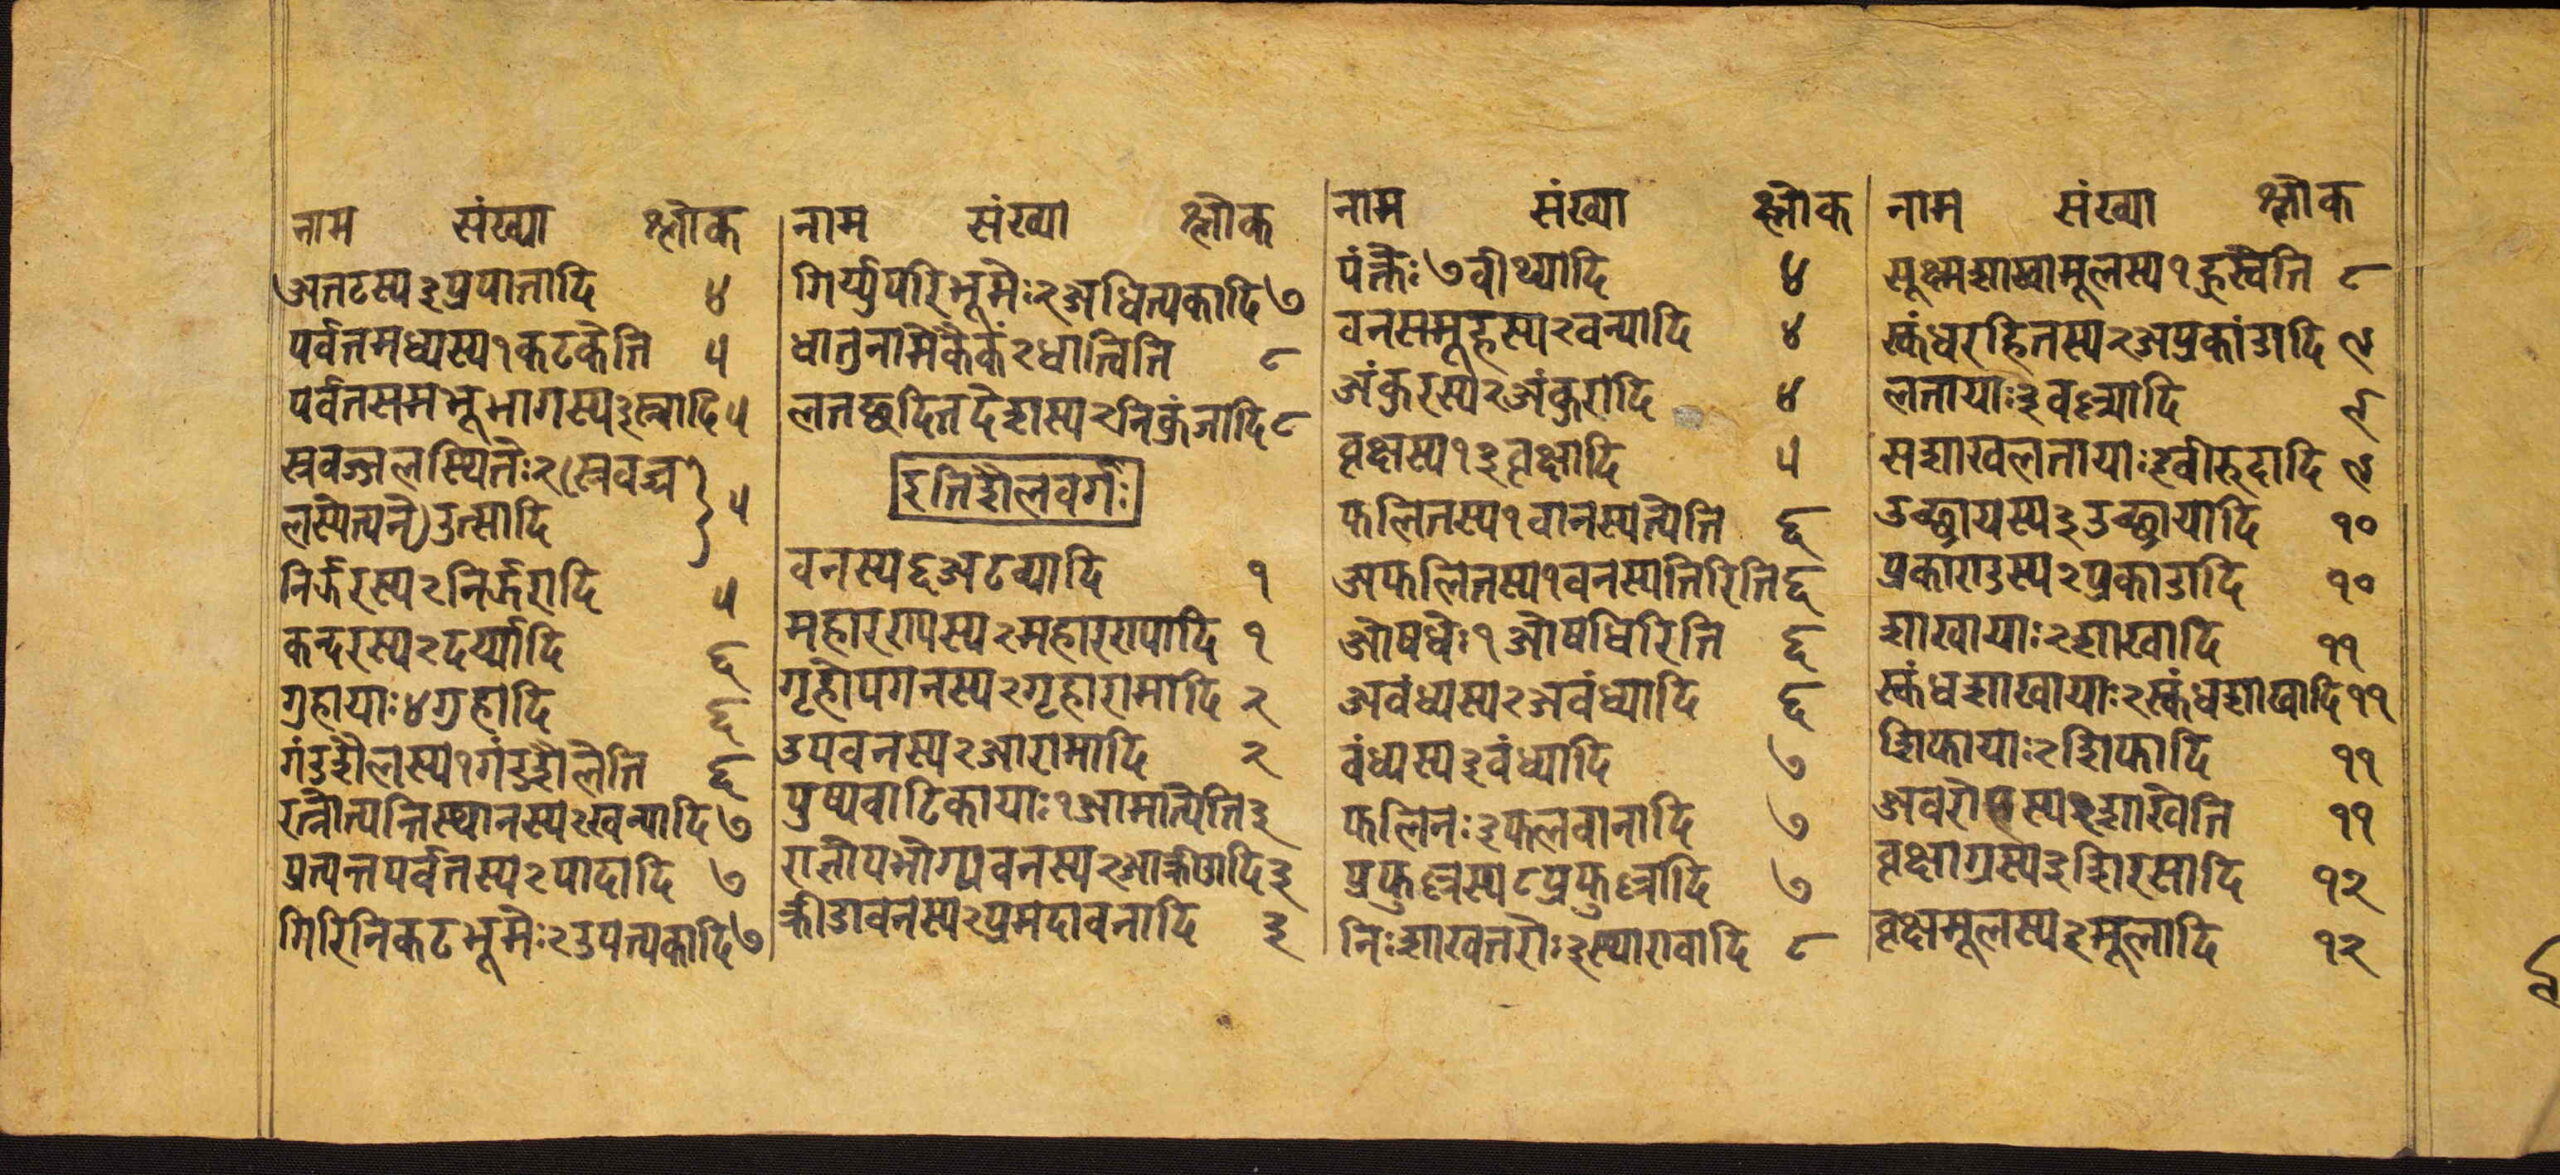 नाम संख्या श्लोक
अतटस्य३प्रपातादि ४
पर्वतमध्यस्य१कटकेति ५
पर्वतसमभूभागस्य३स्न्वादि५
स्रवज्जलस्थितेः२(स्रवज्ज
लस्येत्यन्ये)उत्सादि ५
निर्झरस्य२निर्झरादि ५
कन्दरस्य२दर्य्यादि ६
ग्रहायाः४ग्रहादि ६
गंडशैलस्य१गंडशैलेति ६
रत्नोत्पत्तिस्थानस्य२खन्यादि७
प्रत्यन्तपर्वतस्य२पादादि ७
गिरिनिकटभूमेः२उपत्यकादि७
नाम संख्या श्लोक
गिर्य्युपरिभूमेः२अधित्यकादि७
धातुनामैकैकं२धात्विति ८
लतच्छदितदेशस्य२निकुंजादि८
इतिशैलवर्गः
वनस्य६अटव्यादि १
महारराप्यस्य२महाररापादि १
गृहोपगनस्य२गृहारामादि २
उपवनस्य२आरामादि २
पुष्पवाटिकायाः१आमात्येति३
राजोपभोग्यवनस्य२आक्रीडादि३
क्रीडावनस्य२प्रमदावनादि ३
नाम संख्या श्लोक
पंक्तेः७वीथ्यादि ४
वनसमूहस्य२वन्यादि ४
अंकुरस्य२अंकुरादि ४
वृक्षस्य१३वृक्षादि ५
फलितस्य१वानस्पत्येति ६
अफलितस्य१वनस्पतिरिति६
ओषधेः१ओषधिरिति ६
अवंध्यस्य२अवंध्यादि ६
वंध्यस्य३वंध्यादि ७
फलिनः३फलवानादि ७
प्रफुल्लस्य८प्रफुल्लादि ७
निःशाखतरोः३स्थारावादि ८
नाम संख्या श्लोक
सूक्ष्मशाखामूलस्य१ह्रस्वेति ८
स्कंधरहितस्य२अप्रकांडादि ९
लतायाः३वल्ल्यादि ९
सशाखलतायाः३वीरुदादि ९
उच्छ्रायस्य३उच्छ्रायादि १०
प्रकाराडस्य२प्रकाडादि १०
शाखायाः२शाखादि ११
स्कंधशाखायाः२स्कंधशाखादि११
शिफायाः२शिफादि ११
अवरोहस्य१शाखेति ११
वृक्षाग्रस्य३शिरसादि १२
वृक्षमूलस्य३मूलादि १२